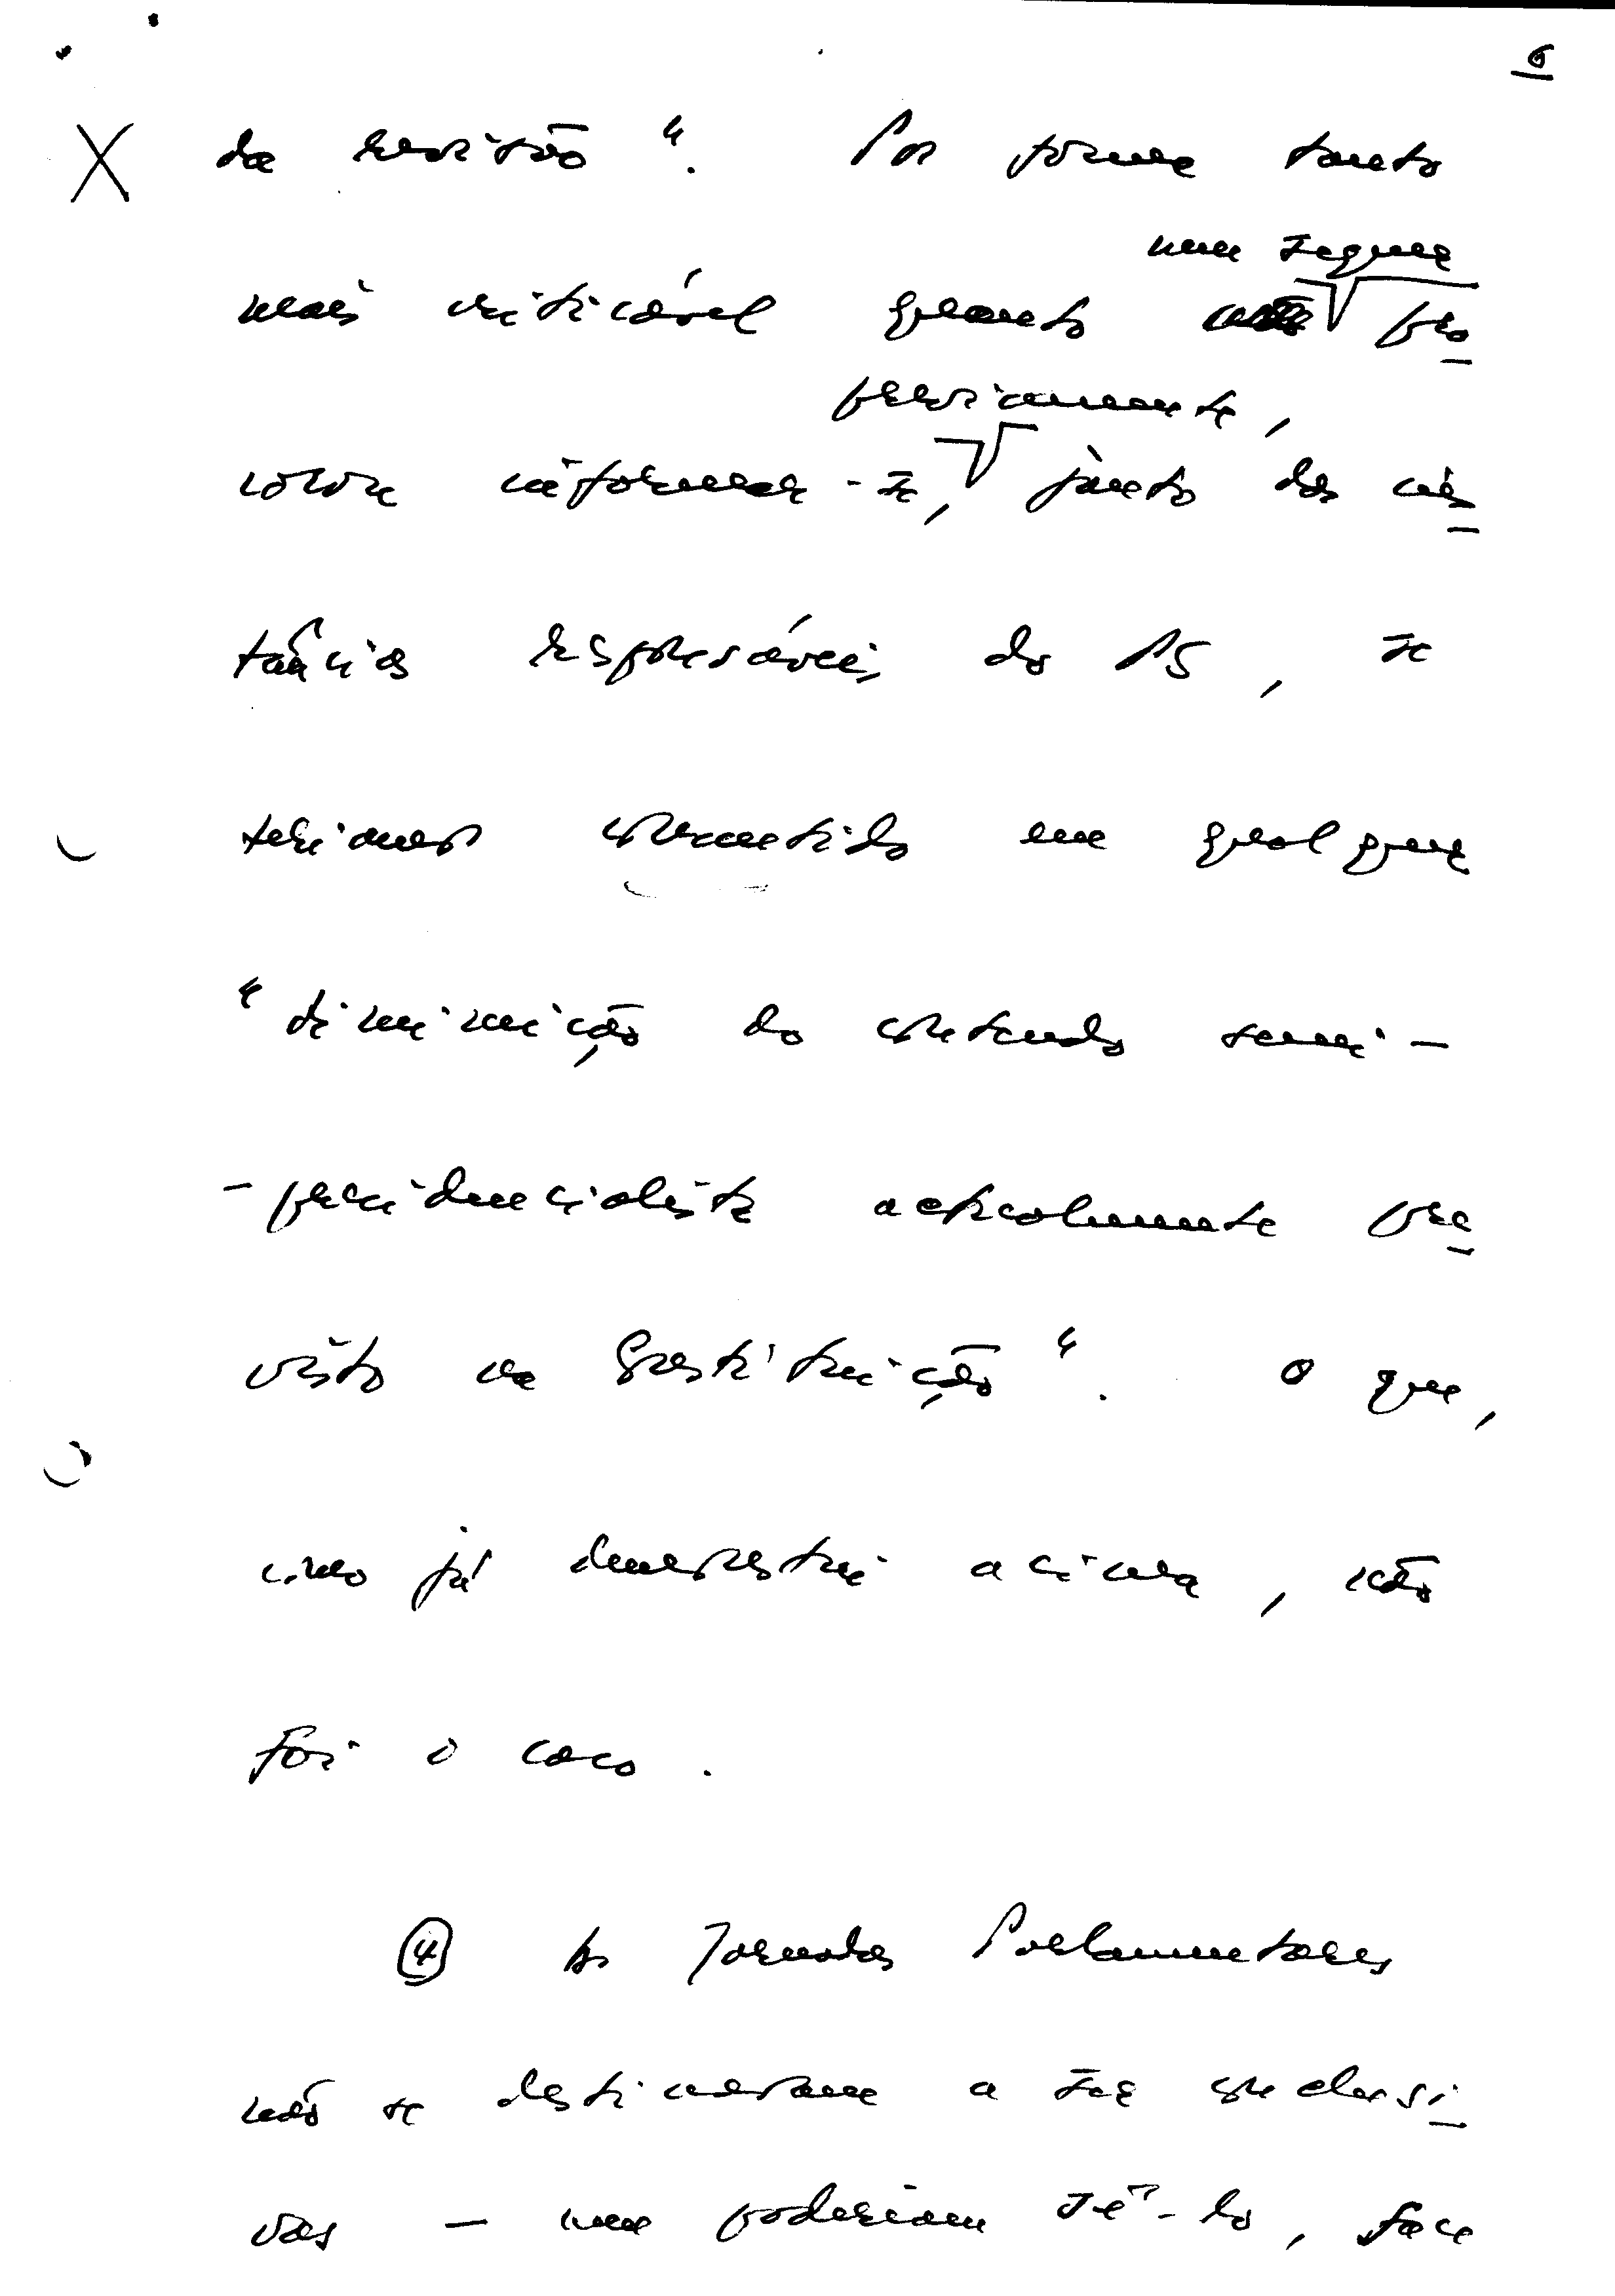 6
da revisão". Por forma tanto
nem sequer
mais criticável quanto pro
previamente,
curou informar-se, junto das ins
tâncias responsáveis do PS, se
teriamos consentido em qualquer
"diminuição do conteudo semi-
-presidencialista actualmente pre
visto na Constituição". O que,
como já demonstrei acima, não
foi o caso.
④ As Jornadas Parlamentares
não se destinavam a ser conclusi
vas — nem poderiam sê-lo, face